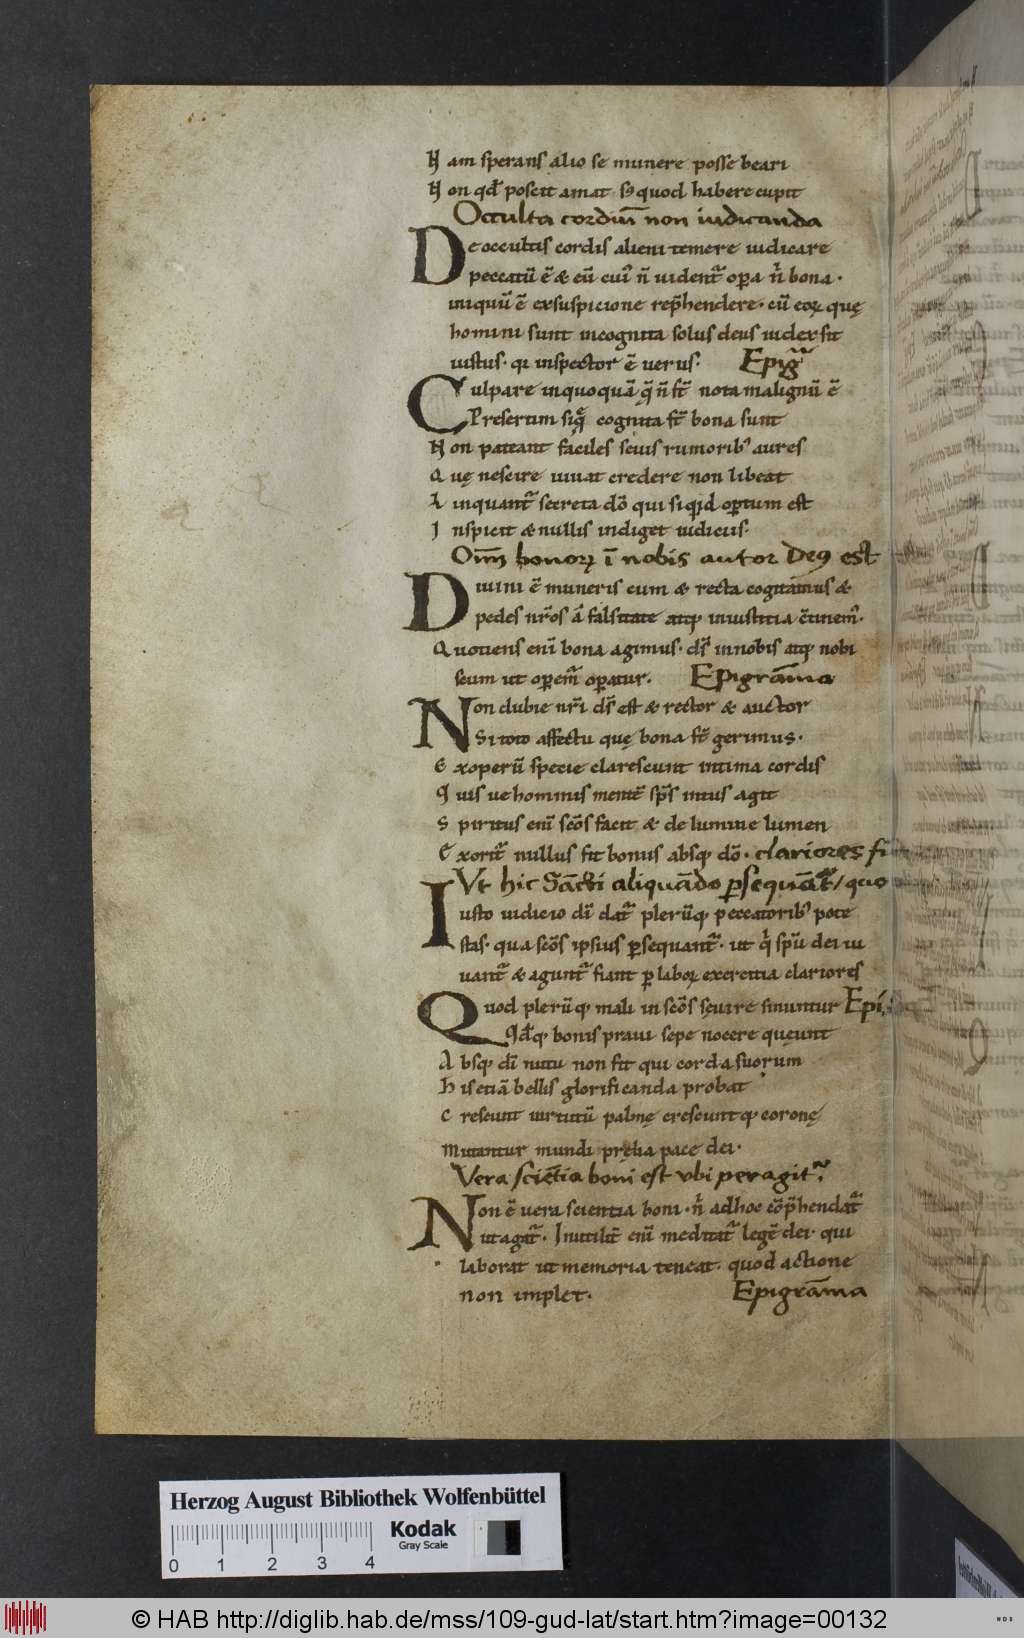 N am sperans alio se munere posse beari
N on qđ poscit amat s; quod habere cupit
Occulta cordiū non iudicanda
De occultis cordis alieni temere iudicare
peccatū ē & eū cui' n̄ uident᷑ op̄a n̄ bona.
iniquū ē exsuspicione rep̄hendere. cū eoꝝ quę
homini sunt incognita solus deus iudex sit
iustus. qi inspector ē uerus. Epig̃
Culpare inquoquā q̄ n̄ st̄ nota malignū ē
Presertim siq̄ cognita st̄ bona sunt
N on pateant faciles seuis rumorib; aures
Q uę nescire iuuat credere non libeat
L inquant᷑ secreta dō qui siqid op̄tum est
I nspicit & nullis indiget iudiciis.
Om̄ bonoꝝ ī nobis autor deꝰ est
Diuini ē muneris cum & recta cogitamus &
pedes nr̄os a falsitate atq; iniustitia c̄tinem᷑.
Quotiens eni bona agimus. ds̄ innobis atq; nobi
scum ut op̄em᷑ op̄atur. Epigrāma
Non dubie nr̄i ds̄ est & rector & auctor
Si toto affectu quę bona st̄ gerimus.
E xoperū specie clarescunt intima cordis
Q uis ue hominis mentē sps̄ intus agit
S piritus eni scōs facit & de lumine lumen
E xorit᷑ nullus fit bonus absq; dō. clariores fi
Vt hic Sācti aliquādo p̱sequāt᷑/ quo
Iusto iudicio di dat᷑ plerūq; peccatorib; pote
stas. qua scōs ipsius p̱sequant᷑. ut q̇ spū dei ui
uant᷑ & agunt᷑ fiant p̱ laboꝝ exercitia clariores
Quod plerūq; mali in scōs seuire sinuntur Epi
Qđq; bonis praui sepe nocere queunt
A bsq; di nutu non fit qui corda suorum
H is etiā bellis glorificanda probat
C rescunt uirtutū palmę crescuntq; coronę
Mutantur mundi pręlia pace dei.
Vera sciētia boni est vbi peragit᷑.
Non ē uera scientia boni. n̄ adhoc cōp̄hendat᷑
ut agat᷑. Inutilit̄ eni meditat᷑ legē dei qui
laborat ut memoria teneat. quod actione
non implet. Epigrāma
Herzog August Bibliothek Wolfenbüttel
Kodak
Gray Scale
0 1 2 3 4
© HAB http://diglib.hab.de/mss/109-gud-lat/start.htm?image=00132